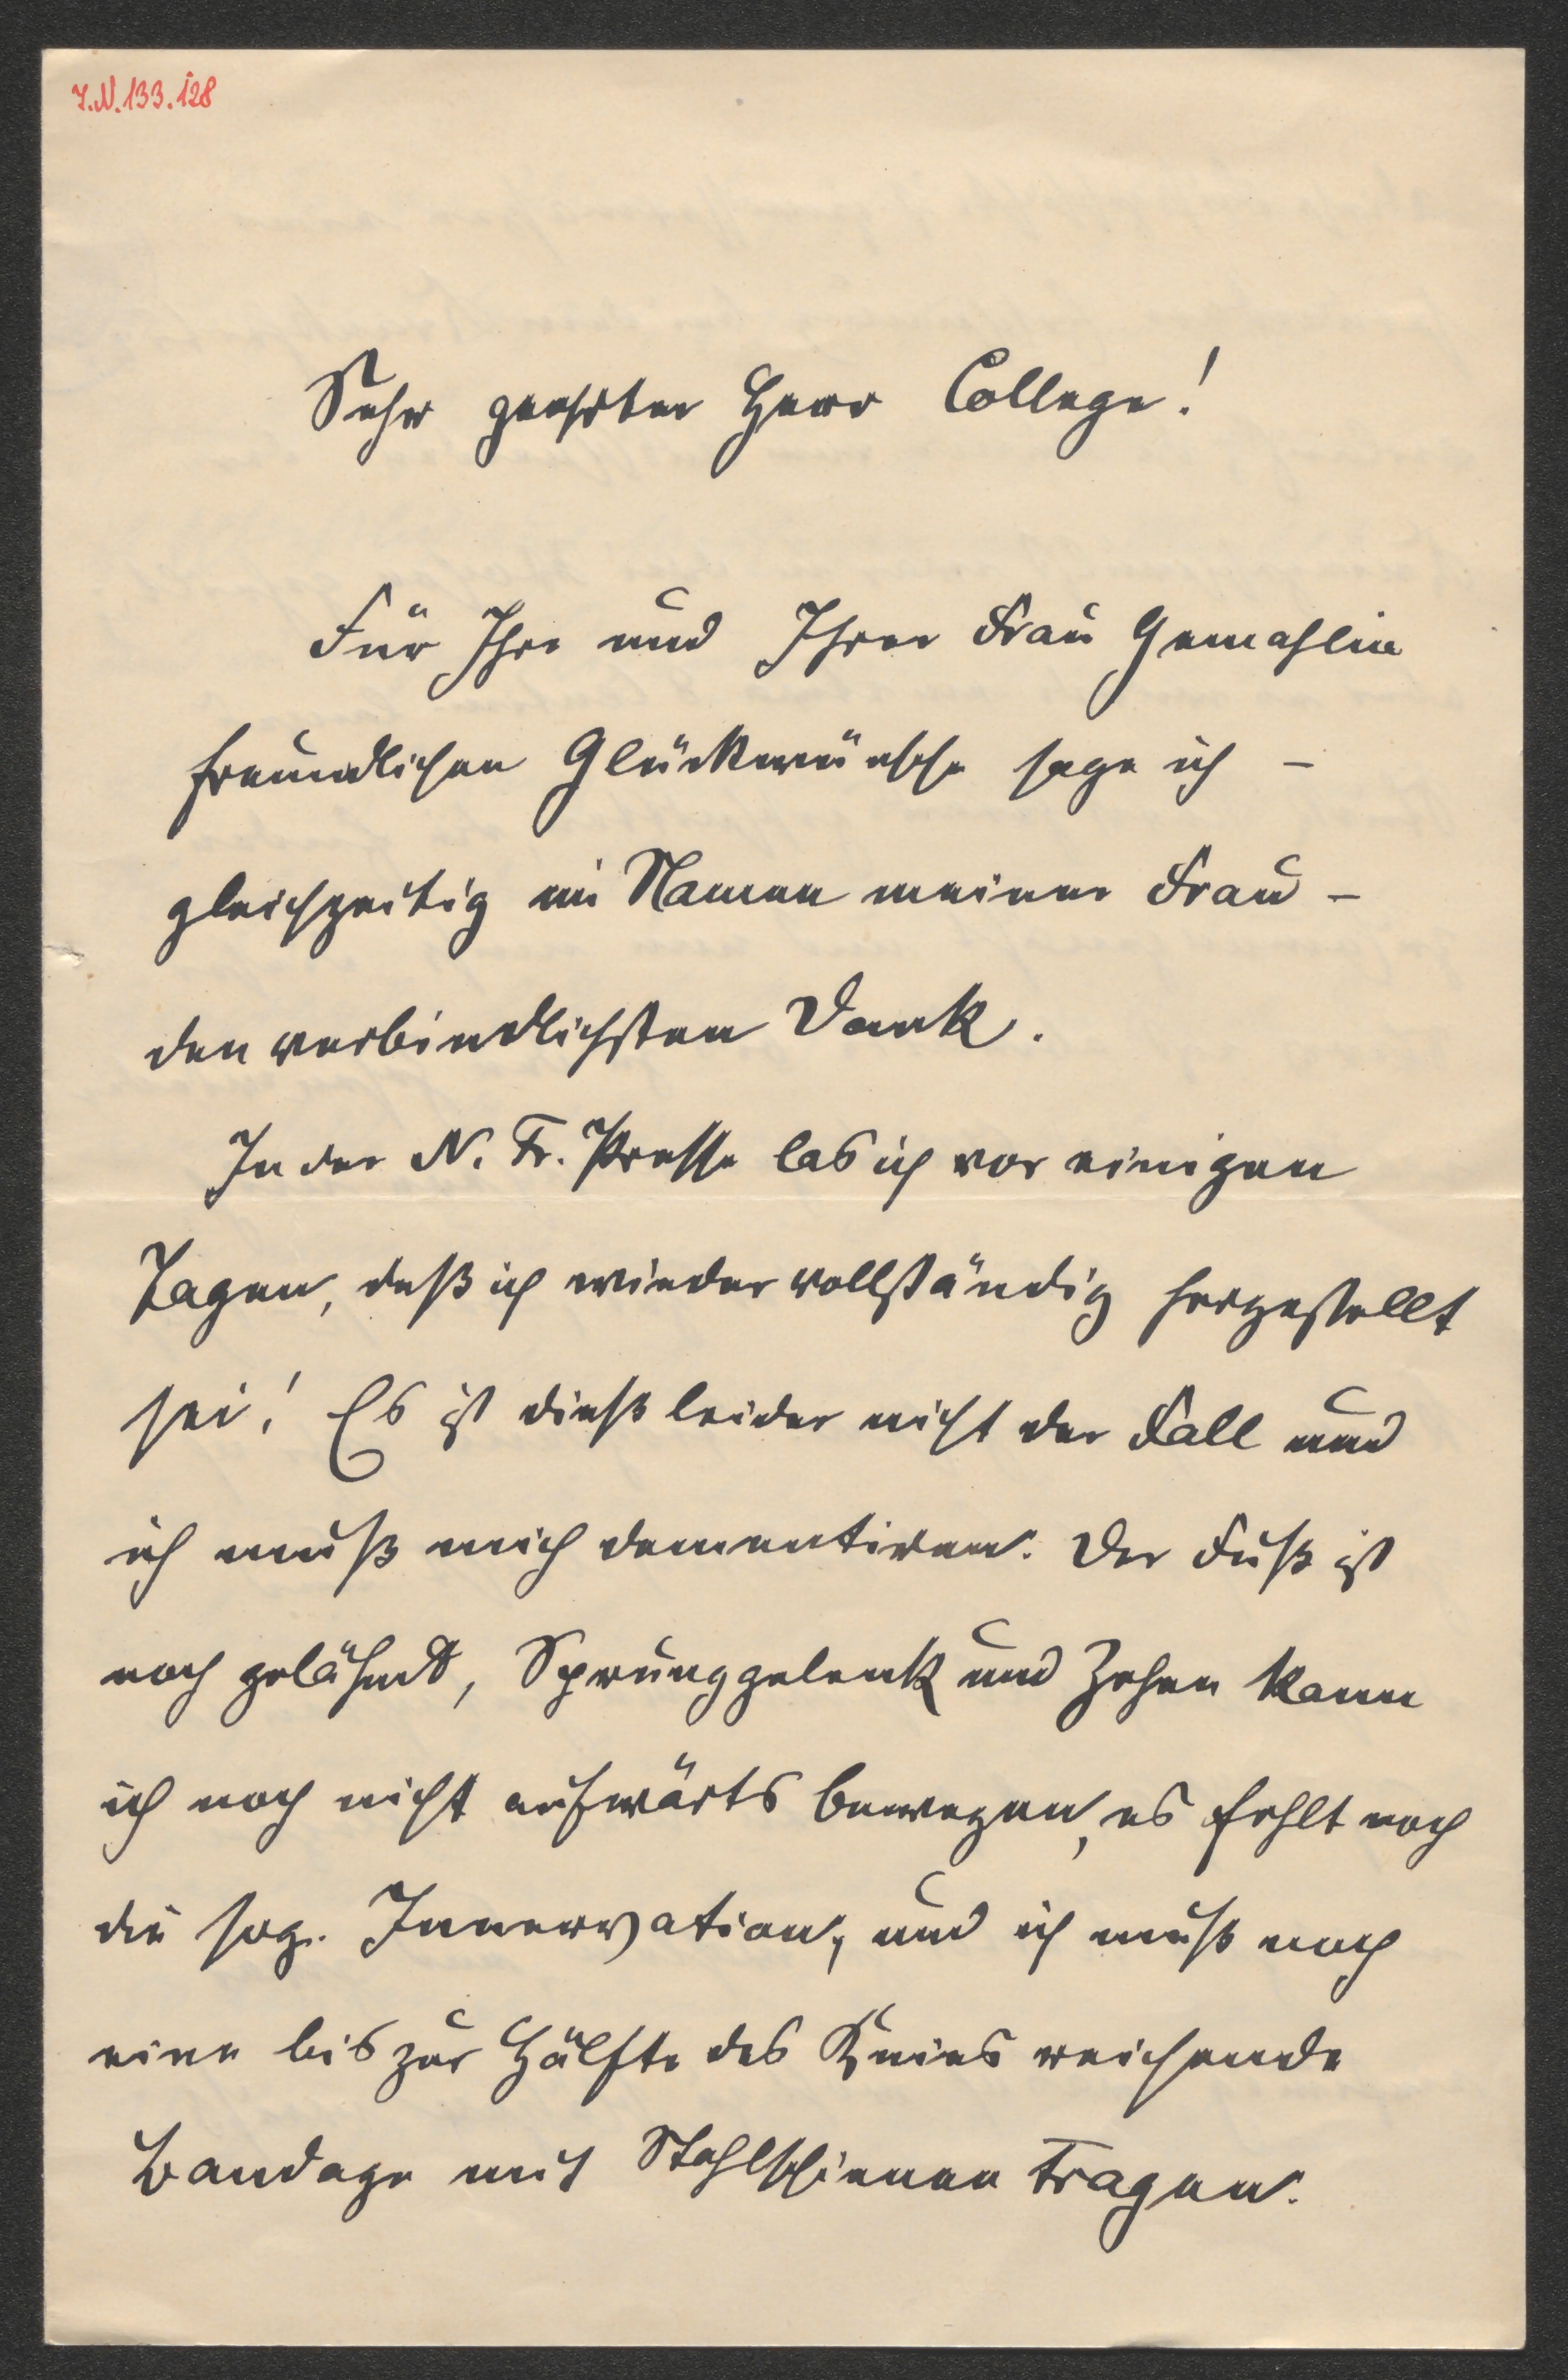 I.N. 133.128
Sehr geehrter Herr College!
Für Ihre und Ihrer Frau Gemahlin
freundlichen Glückwünsche sage ich –
gleichzeitig im Namen meiner Frau –
den verbindlichsten Dank.
In der N. Fr. Presse las ich vor einigen
Tagen, daß ich wieder vollständig hergestellt
sei! Es ist dieß leider nicht der Fall und
ich muß mich dementiren. Der Fuß ist
noch gelähmt, Sprunggelenk und Zehen kann
ich noch nicht aufwärts bewegen, es fehlt noch
die sog. Innervation, und ich muß noch
eine bis zur Hälfte des Knies reichende
Bandage mit Stahlschienen tragen.